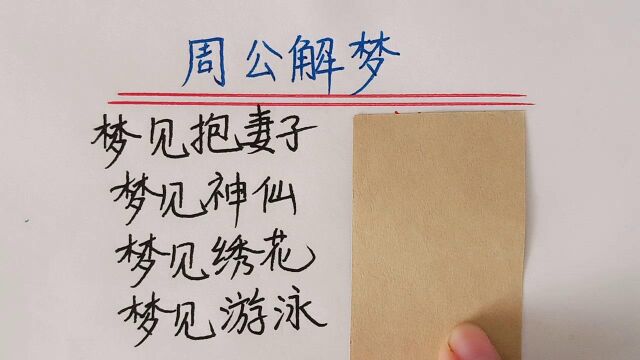 周公解梦
梦见抱妻子
梦见神仙
梦见绣花
梦见游泳